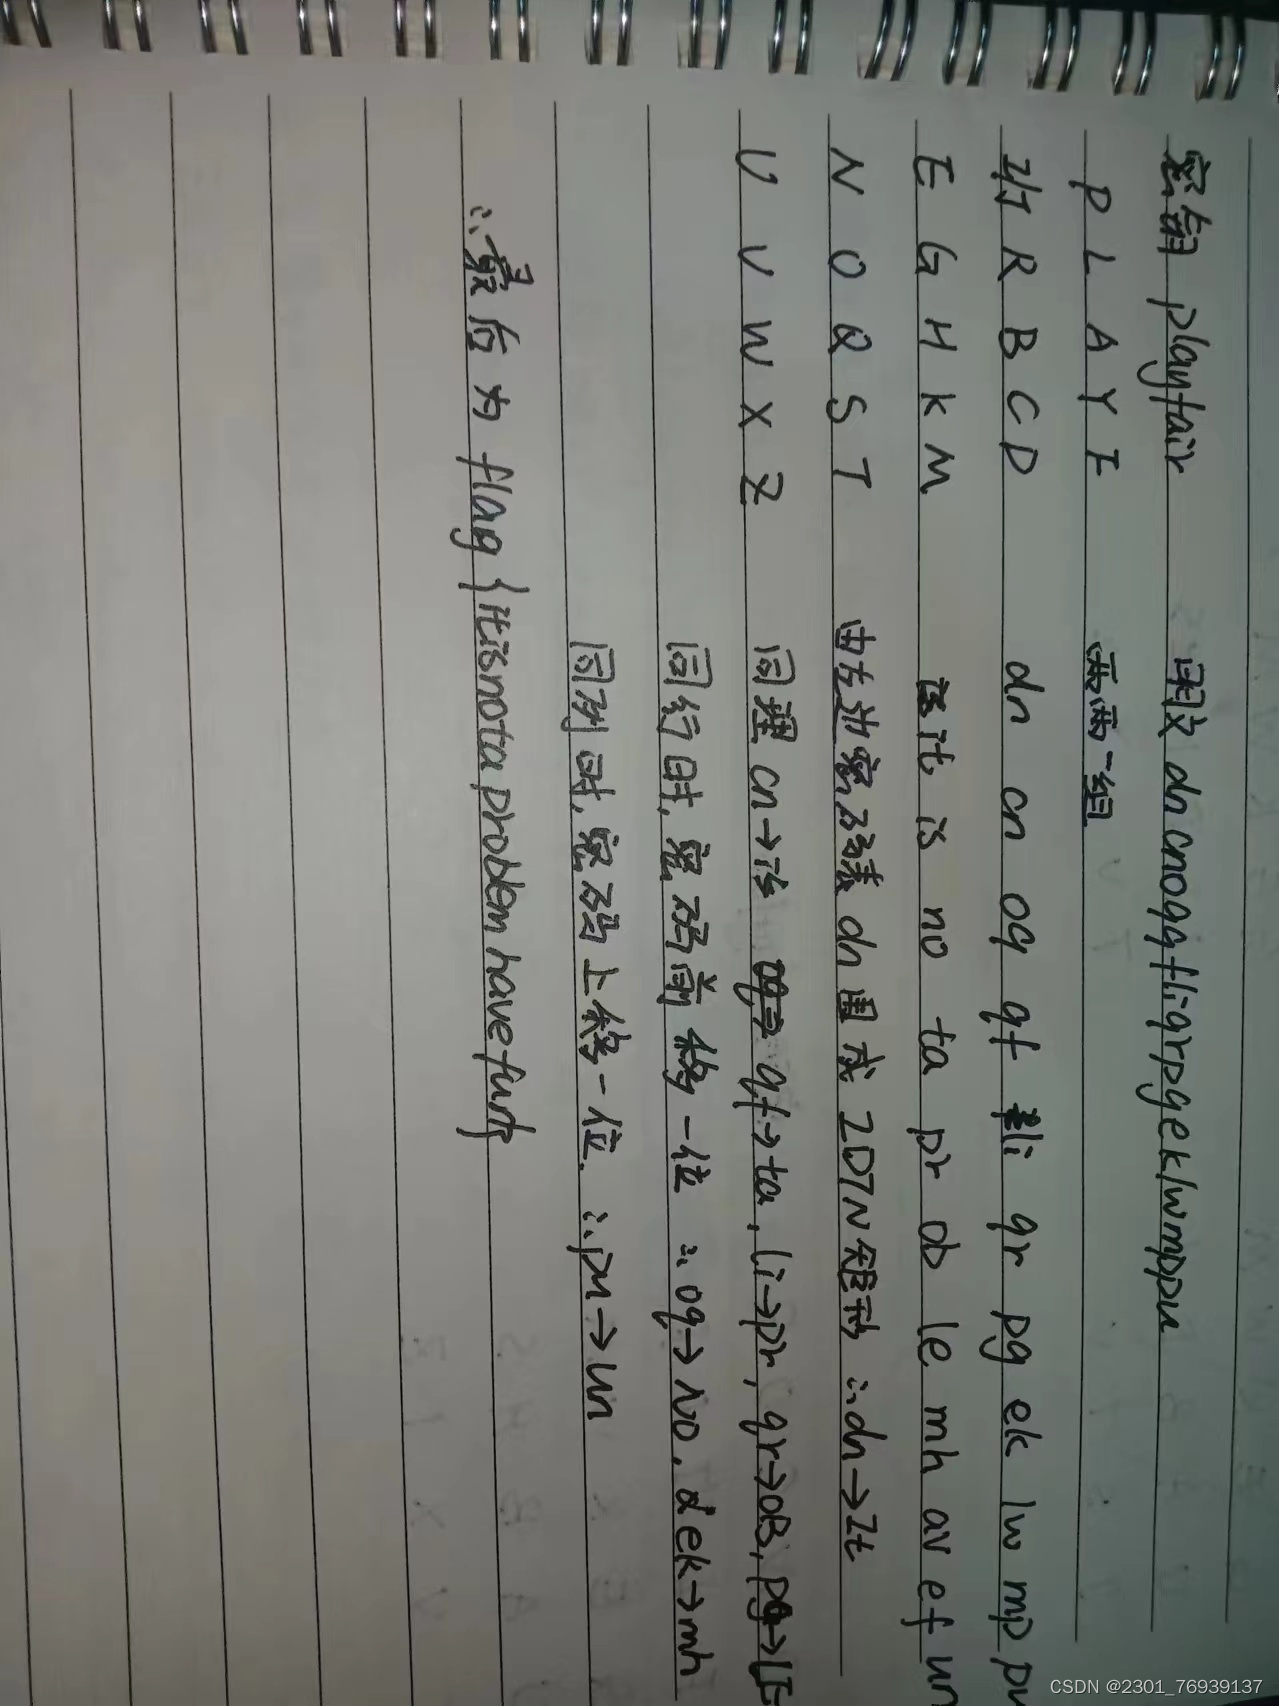 密钥 playfair 明文 dncnoqqfliqrpgeklwmppu
P L A Y F 两两一组
I/J R B C D dn cn oq qf li qr pg ek lw mp pu
E G H K M it is no ta pr ob le mh av ef un
N O Q S T 由左边密码表 dn围成 IDTN矩形 ∴dn→It
U V W X Z 同理 cn→is qf→ta, li→pr, qr→OB, pg→LE
同行时,密码前移一位 ∴oq→NO, ek→mh
同列时,密码上移一位. ∴pu→un
∴最后为 flag{itisnotaproblemhavefun}
CSDN @2301_76939137